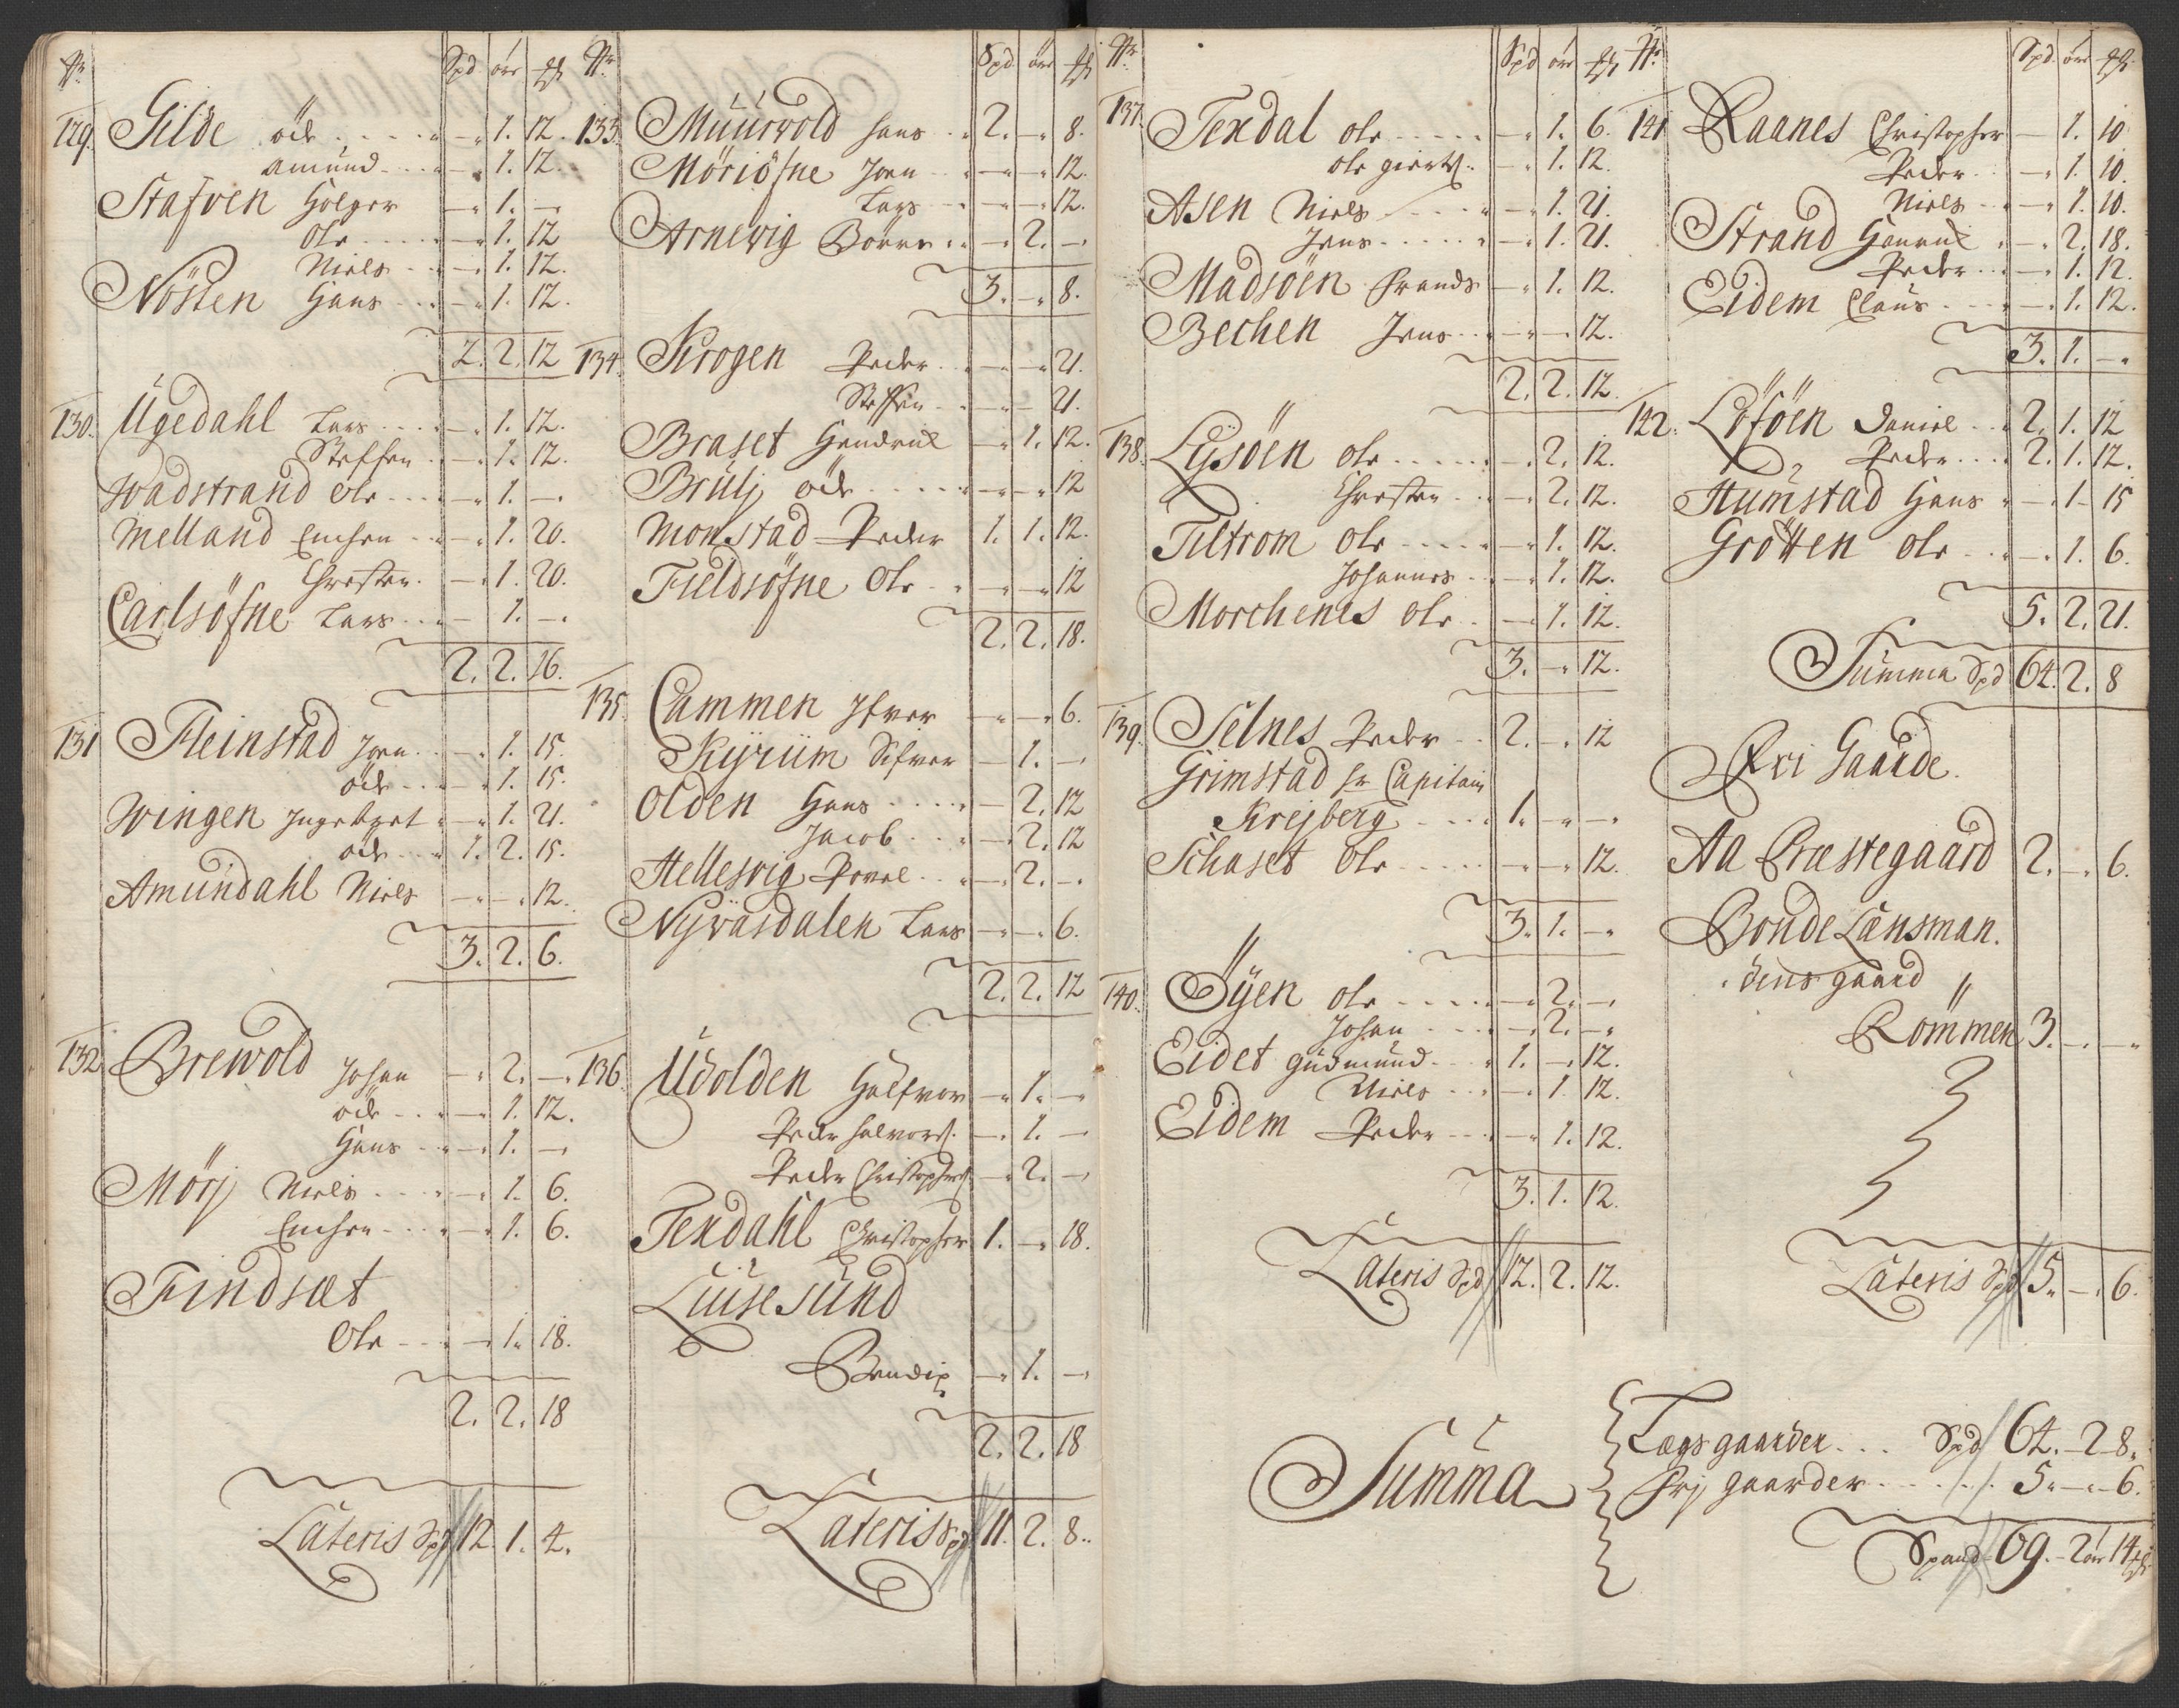 No Spd ör mk
129. Gilde öde - 1. 12.
Amund - 1. 12.
Stafven Holger - 1. -
Ole - 1. 12
Niels - 1. 12.
Nösten Hans - 1. 12.
2. 2. 12
130. Ügedahl Lars - 1. 12.
Steffen - 1. 12.
Wadstrand Ole - 1. -
Melland Enchen - 1. 20.
Christen - 1. 20.
Carlsöfne Lars - 1. -
2. 2. 16.
131 Fleinstad Jon - 1. 15.
öde - 1. 15.
Wingen Ingebret - 1. 21.
öde 1. 2. 15.
Amundahl Niels - - 12.
3. 2. 6.
132 Brewold Johan - 2. -
öde - 1. 12.
Hans - 1. -
Mörj Niels - 1. 6.
Enchen - 1. 6.
Findsæt
Ole - 1. 18.
2. 2. 18
Lateris Spd 12. 1. 4.
No Spd ör mk
133. Muurvold Hans 2. - 8.
Möriöfne Jon - - 12.
Lars - - 12.
Arnevig Börre - 2. -
3. - 8.
134. Krogen Peder - - 21.
Steffen - - 21.
Braset Hendrick - 1. 12.
Brülj öde - - 12
Monstad Peder 1. 1. 12.
Fieldsöfne Ole - - 12
2. 2. 18.
135. Cammen Ifver - - 6.
Kÿrüm Sifver - 1. -
Olden Hans - 2. 12
Jacob - 2. 12
Hellesvig Povel - 2. -
Nyvasdalen Lars - - 6.
2. 2. 12
136. Udolden Halfvor - 1. -
Peder Halvors. - 1. -
Peder Christophers. - 2. -
Texdahl Christopher 1. - 18.
Luusesund
Bendix - 1. -
2. 2. 18
Lateris Spd 11. 2. 8.
No Spd ör mk
137. Texdal Ole - 1. 6.
Ole Giertz. - 1. 12.
Asen Niels - 1. 21.
Jens - 1. 21.
Madsöen Frands - 1. 12.
Bechen Jens - - 12.
2. 2. 12.
138. Lysöen Ole - 2. 12.
Christen - 2. 12.
Tiltrom Ole - 1. 12.
Johannes - 1. 12.
Morchenes Ole - 1. 12.
3. - 12.
139. Selnes Peder 2. - 12
Grimstad hr Capitain
Krejberg 1. - -
Schaset Ole - - 12.
3. 1. -
140. Öyen Ole - 2. -
Johan - 2. -
Eidet Gudmund 1. - 12.
Niels - 1. 12.
Eidem Peder - 1. 12.
3. 1. 12.
Lateris Spd 12. 2. 12.
No Spd ör mk
141 Raanes Christopher - 1. 10
Peder - 1. 10.
Niels - 1. 10.
Strand Henrich - 2. 18.
Peder - 1. 12.
Eidem Claus - 1. 12.
3. 1. -
142. Löföen Daniel 2. 1. 12
Peder 2. 1. 12.
Humstad Hans - 1. 15
Grötten Ole - 1. 6.
5. 2. 21.
Summa Spd 64. 2. 8
Fri Gaarde.
Aa Præstegaard 2. - 6.
Bonde Länsman.
dens gaard
Römmen 3. - -
Lateris Spd 5. - 6.
Summa
Lægs gaarder Spd 64. - 2 - 8.
Frj gaarder 5. - - 6.
Spand 69. - 2 ör 14 mk